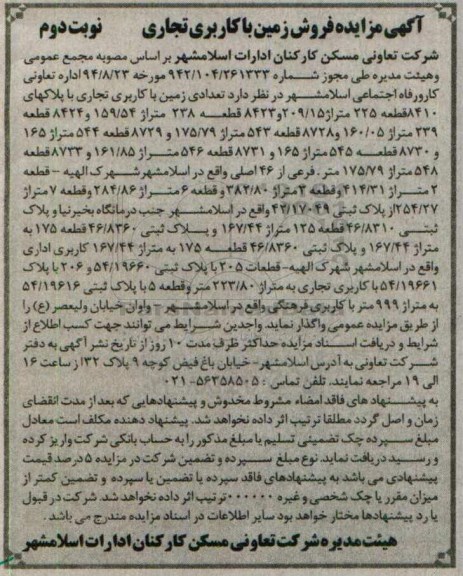 آگهی مزایده فروش زمین با کاربری تجاری نوبت دوم
شرکت تعاونی مسکن کارکنان ادارات اسلامشهر بر اساس مصوبه مجمع عمومی
وهیئت مدیره طی مجوز شماره ۹۴۲/۱۰۴/۲۶۱۳۳۳ مورخه ۹۴/۸/۲۳ اداره تعاونی
کارورفاه اجتماعی اسلامشهر در نظر دارد تعدادی زمین با کاربری تجاری با پلاکهای
۸۴۱۰قطعه ۲۲۵ متراژ۲۰۹/۱۵و۸۴۲۳ قطعه ۲۳۸ متراژ ۱۵۹/۵۴ و۸۴۲۴ قطعه
۲۳۹ متراژ ۱۶۰/۰۵ و۸۷۲۸ قطعه ۵۴۳ متراژ ۱۷۵/۷۹ و ۸۷۲۹ قطعه ۵۴۴ متراژ ۱۶۵
و ۸۷۳۰ قطعه ۵۴۵ متراژ ۱۶۵ و ۸۷۳۱ قطعه ۵۴۶ متراژ ۱۶۱/۸۵ و ۸۷۳۳ قطعه
۵۴۸ متراژ ۱۷۵/۷۹ متر ، فرعی از ۴۶ اصلی واقع در اسلامشهر شهرک الهیه – قطعه
۲ متراژ ۴۱۴/۳۱ وقطعه ۳ متراژ ۳۸۲/۸۰ و قطعه ۶ متراژ ۲۸۴/۸۶ وقطعه ۷ متراژ
۲۵۴/۲۷از پلاک ثبتی ۴۳/۱۷۰۴۹ واقع در اسلامشهر جنب درمانگاه بخیرنیا و پلاک
ثبتی ۴۶/۸۳۱۰ قطعه ۱۲۵ متراژ ۱۶۷/۴۴ و پلاک ثبتی ۴۶/۸۳۶۰ قطعه ۱۷۵ به
متراژ ۱۶۷/۴۴ و پلاک ثبتی ۴۶/۸۳۶۰ قطعه ۱۷۵ به متراژ ۱۶۷/۴۴ کاربری اداری
واقع در اسلامشهر شهرک الهیه- قطعات ۲۰۵ با پلاک ثبتی ۵۴/۱۹۶۶۰ و ۲۰۶ با پلاک
۵۴/۱۹۶۶۱ با کاربری تجاری به متراژ ۲۲۳/۸۰ متر وقطعه ۵ با پلاک ثبتی ۵۴/۱۹۶۱۶
به متراژ ۹۹۹ متر با کاربری فرهنگی واقع در اسلامشهر – واوان خیابان ولیعصر (ع) را
از طریق مزایده عمومی واگذار نماید. واجدین شرایط می توانند جهت کسب اطلاع از
شرایط و دریافت اسناد مزایده حداکثر ظرف مدت ۱۰ روز از تاریخ نشر آگهی به دفتر
شرکت تعاونی به آدرس اسلامشهر- خیابان باغ فیض کوچه ۹ پلاک ۳۲ از ساعت ۱۶
الی ۱۹ مراجعه نمایند. تلفن تماس : ۵۶۳۵۸۵۰۵-۰۲۱
به پیشنهاد های فاقد امضاء مشروط مخدوش و پیشنهادهایی که بعد از مدت انقضای
زمان و اصل گردد مطلقا ترتیب اثر داده نخواهد شد. پیشنهاد دهنده مکلف است معادل
مبلغ سپرده چک تضمینی تسلیم یا مبلغ مذکور را به حساب بانکی شرکت واریز کرده
و رسید دریافت نماید. نوع مبلغ سپرده و تضمین شرکت در مزایده ۵ درصد قیمت
پیشنهادی می باشد به پیشنهادهای فاقد سپرده یا تضمین یا سپرده و تضمین کمتر از
میزان مقرر یا چک شخصی و غیره ۰۰۰۰۰۰۰ ترتیب اثر داده نخواهد شد. شرکت در قبول
یا رد پیشنهادها مختار خواهد بود سایر اطلاعات در اسناد مزایده مندرج می باشد .
هیئت مدیره شرکت تعاونی مسکن کارکنان ادارات اسلامشهر